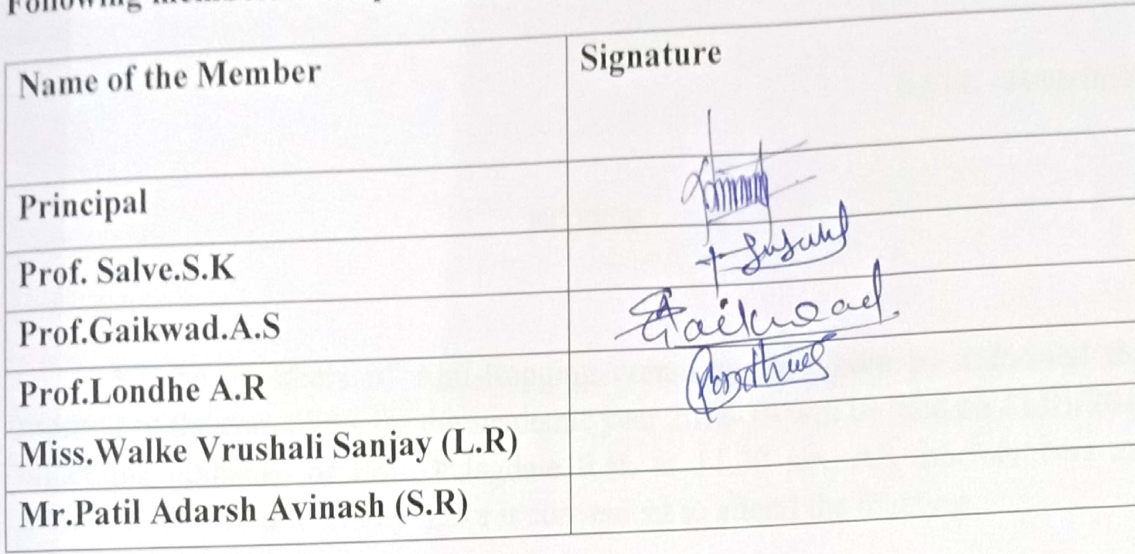 Following
Name of the Member Signature
Principal
Prof. Salve.S.K
Prof.Gaikwad.A.S Gaikwad
Prof.Londhe A.R
Miss.Walke Vrushali Sanjay (L.R)
Mr.Patil Adarsh Avinash (S.R)